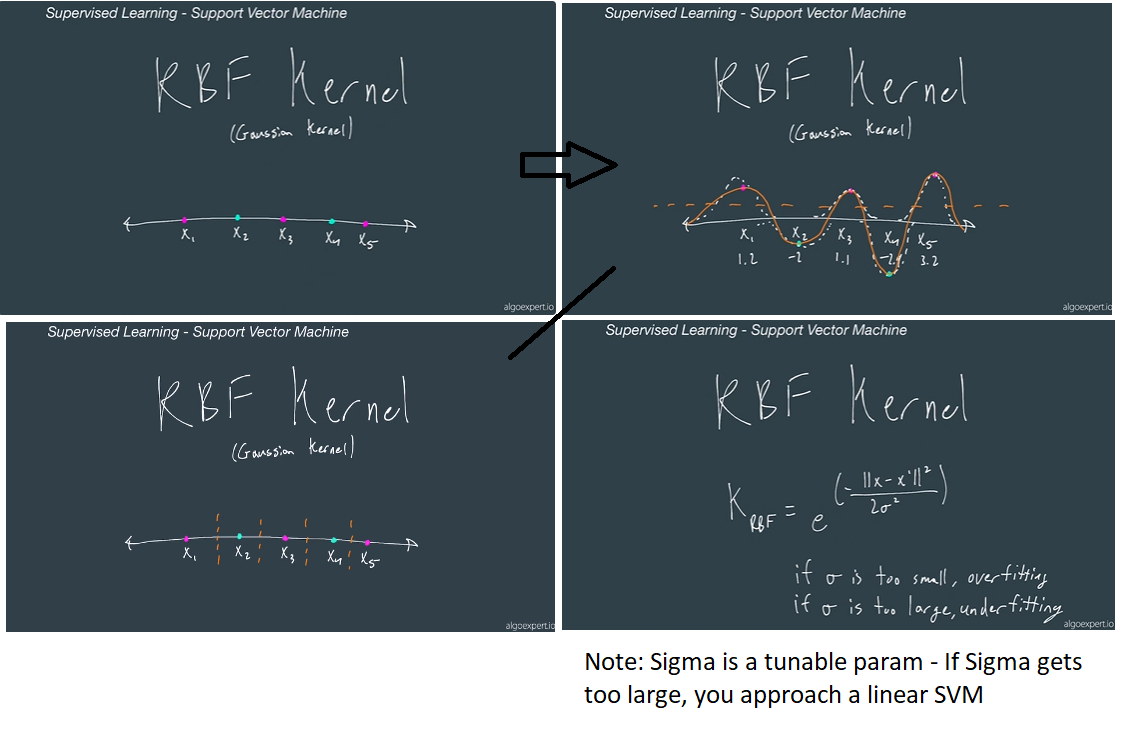 Supervised Learning - Support Vector Machine
RBF Kernel
(Gaussian Kernel)
X₁ X₂ X₃ X₄ X₅
algoexpert.io
Supervised Learning - Support Vector Machine
RBF Kernel
(Gaussian Kernel)
X₁ X₂ X₃ X₄ X₅
1.2 -2 1.1 3.2
algoexpert.io
Supervised Learning - Support Vector Machine
RBF Kernel
(Gaussian Kernel)
X₁ X₂ X₃ X₄ X₅
algoexpert.io
Supervised Learning - Support Vector Machine
RBF Kernel
K_RBF = e^(-||x-x'||²/2σ²)
if σ is too small, overfitting
if σ is too large, underfitting
algoexpert.io
Note: Sigma is a tunable param - If Sigma gets
too large, you approach a linear SVM